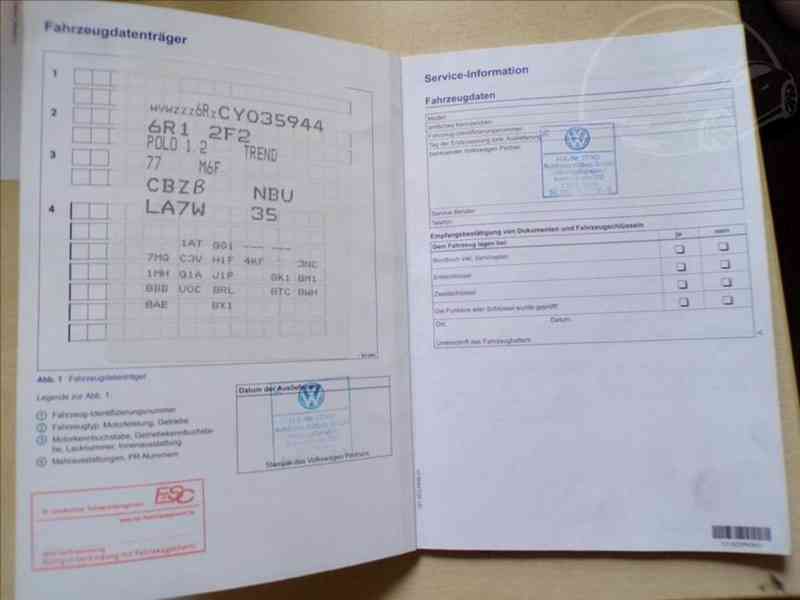 Fahrzeugdatenträger
1
WVWZZZ6RZCY035944
2
6R1 2F2
POLO 1.2 TREND
3
77 M6F
CBZB NBU
4
LA7W 35
1AT G01 --- ---
7MG C3V H1F 4KF 3NC
1MH Q1A J1P 8K1 8M1
8BB U0C 8RL 8TC 8WH
8AE 8X1
Abb. 1 Fahrzeugdatenträger
Legende zur Abb. 1:
1 Fahrzeug-Identifizierungsnummer
2 Fahrzeugtyp, Motorleistung, Getriebe
3 Motorkennbuchstabe, Getriebekennbuchstabe, Lacknummer, Innenausstattung
4 Mehrausstattungen, PR-Nummern
Datum der Auslieferung
Stempel des Volkswagen Partners
ESC
Service-Information
Fahrzeugdaten
Modell:
amtliches Kennzeichen:
Fahrzeug-Identifizierungsnummer:
Tag der Erstzulassung bzw. Auslieferung
betreuender Volkswagen Partner:
Service-Berater:
Telefon:
Empfangsbestätigung von Dokumenten und Fahrzeugschlüsseln
Dem Fahrzeug lagen bei: ja nein
Bordbuch inkl. Serviceplan
Erstschlüssel
Zweitschlüssel
Die Funktion aller Schlüssel wurde geprüft
Ort: Datum:
Unterschrift des Fahrzeughalters: